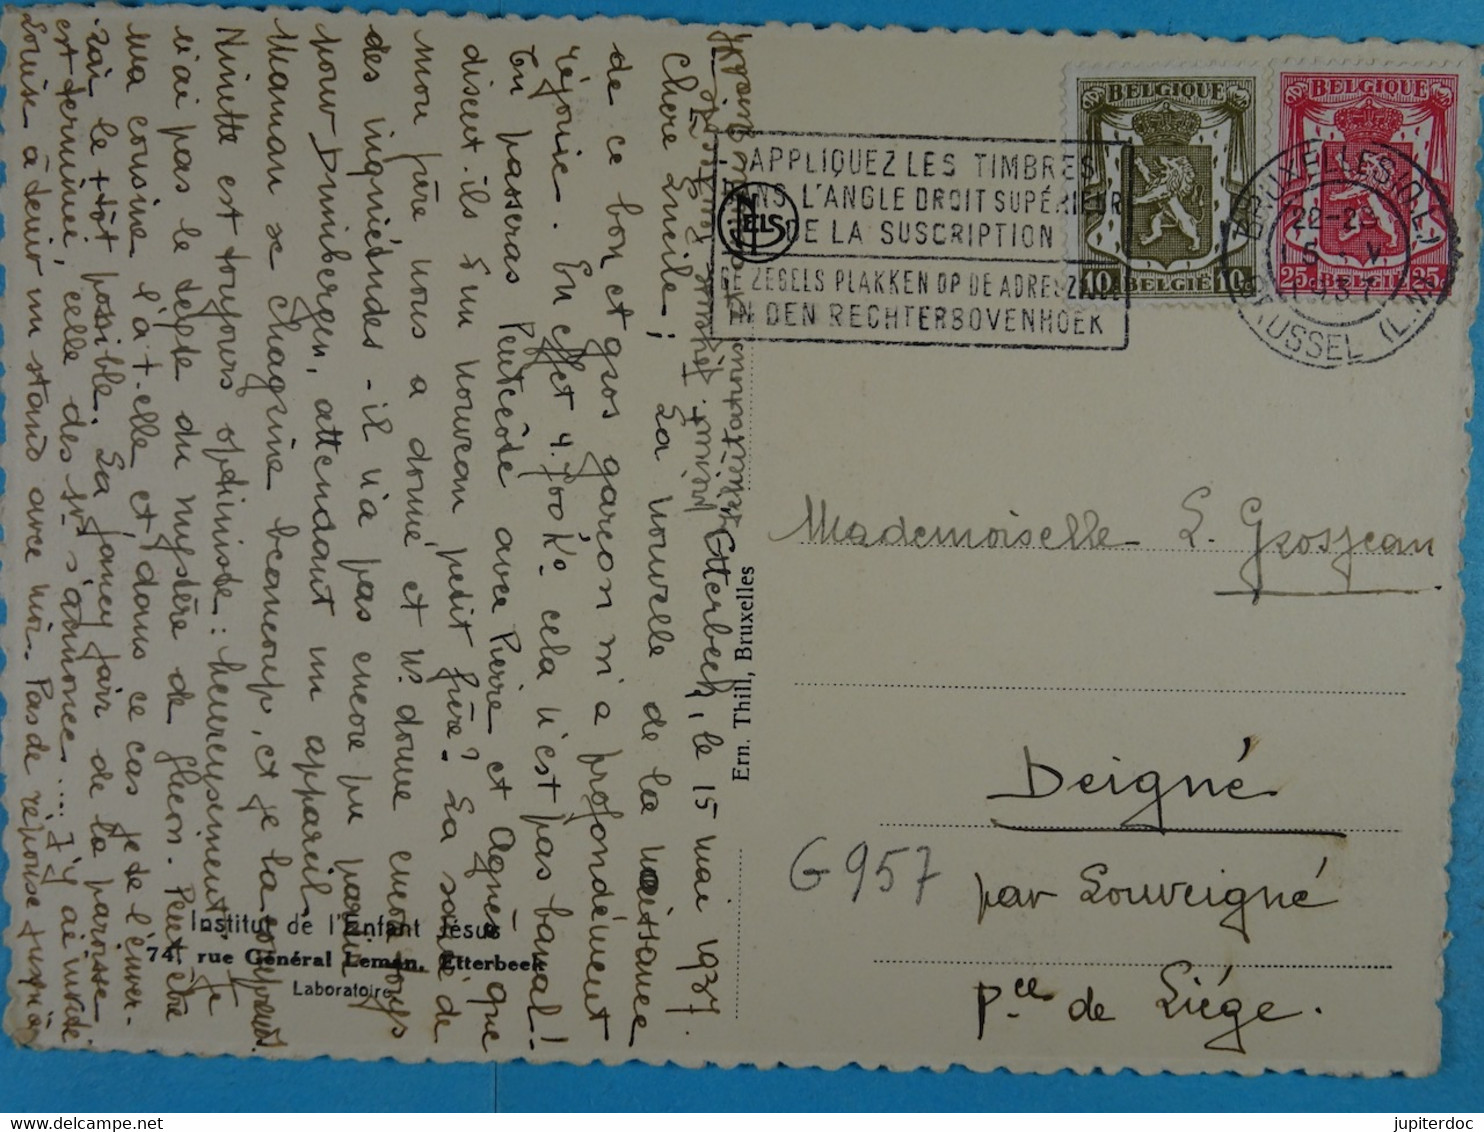 Etterbeek, le 15 mai 1937.
Chère Lucile,
La nouvelle de la naissance
de ce bon et gros garçon m'a profondément
réjouie. En effet 4.700 K° cela n'est pas banal!
Tu passeras Pentecôte avec Pierre et Agnès que
disent-ils d'un nouveau petit frère? La santé de
mon père nous a donné et ns donne encore
des inquiétudes - il n'a pas encore pu partir
pour Duinbergen, attendant un appareil
Maman se chagrine beaucoup, et je la comprends.
Ninette est toujours optimiste: heureusement! Je
n'ai pas le texte du mystère de
ma cousine l'a-t-elle et dans ce cas je te l'enver-
rai le + tôt possible. La fancy fair de la paroisse
est terminée, celle des se s'annonce.... J'y ai invité
Louise à tenir un stand avec moi. Pas de réponse
Institut de l'Enfant Jésus
74, rue Général Leman, Etterbeek
Laboratoire
Ern. Thill, Bruxelles
NELS
- APPLIQUEZ LES TIMBRES
DANS L'ANGLE DROIT SUPÉRIEUR
DE LA SUSCRIPTION
DE ZEGELS PLAKKEN OP DE ADRESZIJDE
IN DEN RECHTERBOVENHOEK
BELGIQUE
10c BELGIË 10c
BELGIQUE
25c BELGIË 25c
BRUXELLES (Q.L.)
22-23
1937
BRUSSEL (L.W.)
Mademoiselle L. Grosjean
Deigné
par Louveigné
Pce de Liége.
G957
jupiterdoc